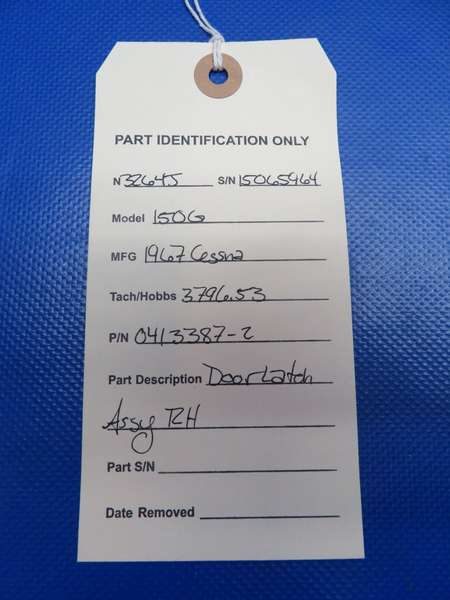 PART IDENTIFICATION ONLY
N 3264J S/N 15065964
Model 150G
MFG 1967 Cessna
Tach/Hobbs 3796.53
P/N 0413387-2
Part Description Door Latch
Assy RH
Part S/N
Date Removed